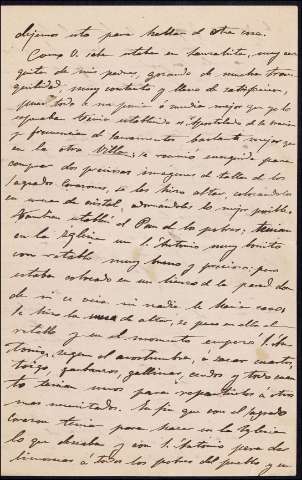 dejemos esto para hablar de otra cosa.
Como V. sabe estaba en Lanvalita, muy cer
quita de mis padres, gozando de mucha tran
quilidad, muy contento y lleno de satisfacción,
pues todo a me ponia á medio mejor que yo lo
esperaba tenia establecido el Apostolado de la oración
y frecuencia de Sacramentos bastante mejor que
en la otra Villa; se reunió enseguida para
comprar dos preciosas imagenes de talla de los
Sagrados Corazones, se les hizo altar colocandolos
en urnas de cristal adornandolos lo mejor posible.
Tambien establecí el Pan de los pobres; tenian
en la Iglesia un S. Antonio muy bonito
con retablo muy bueno y precioso; pero
estaba colocado en un hueco de la pared don
de ni se veia ni nadie le hacia caso;
le hice la mesa de altar, se puso en ella el
retablo y en el momento empezó S. An
tonio, segun el acostumbra, á sacar cuartos,
trigo, garbanzos, gallinas, cerdos y todo cuan
to tenian unos para repartirlos á otros
mas necesitados. En fin que con el Sagrado
Corazon tenia para hacer en la Iglesia
lo que deseaba y con S. Antonio para dar
limosnas á todos los pobres del pueblo y en